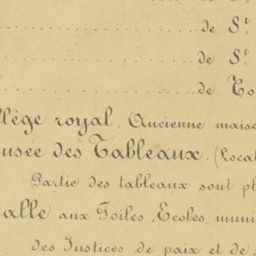 de S.^t
de S.^t
de To
llège royal. Ancienne maiso
usée des Tableaux. (Local
Partie des tableaux sont pl
alle aux Toiles, Ecoles muni
des Justices de paix et de